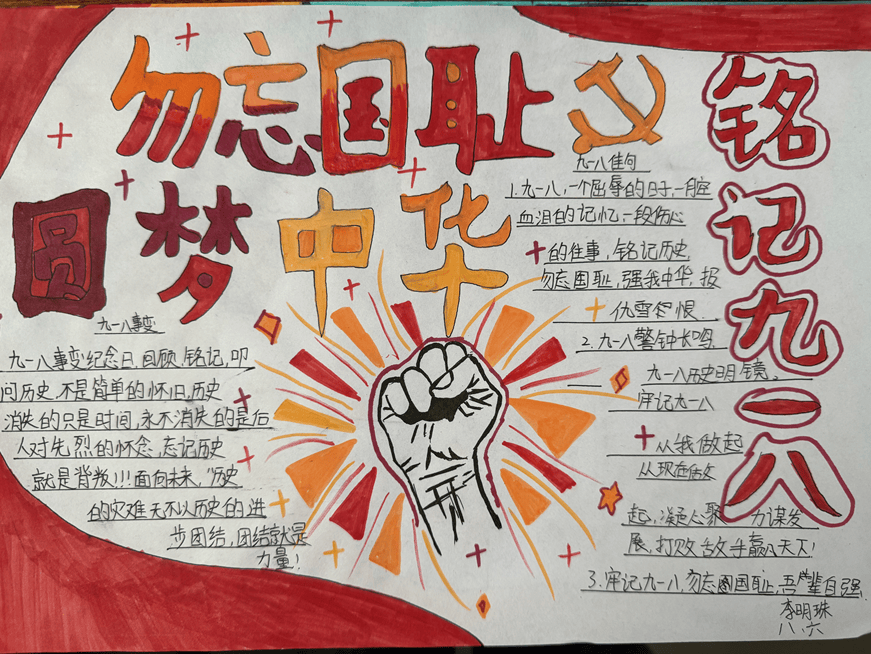 勿忘国耻
圆梦中华
铭记九一八
九一八事变
九一八事变纪念日,回顾,铭记,叩
问历史,不是简单的怀旧,历史
消失的只是时间,永不消失的是后
人对先烈的怀念,忘记历史
就是背叛!!!面向未来,"历史
的灾难无不以历史的进
步团结,团结就是
力量!
九一八佳句
1.九一八,一个屈辱的日子,一腔
血泪的记忆,一段伤心
的往事,铭记历史,
勿忘国耻,强我中华,报
仇雪恨.
2.九一八警钟长鸣,
九一八历史明镜,
牢记九一八
从我做起
从现在做
起,凝心聚力谋发
展,打败敌手赢天下!
3.牢记九一八,勿忘圆国耻,吾辈自强.
李明珠
八.六